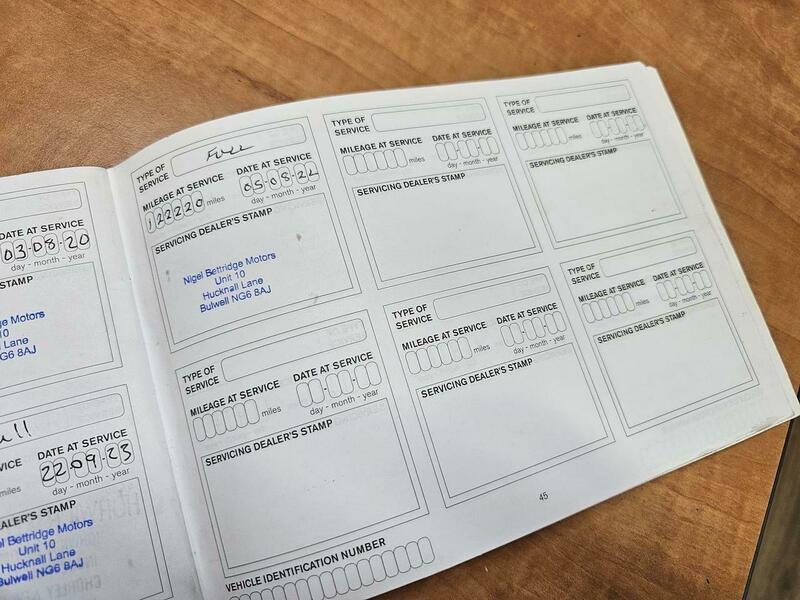 DATE AT SERVICE
03-08-20
day - month - year
STAMP
Motors
10
Lane
NG6 8AJ
DATE AT SERVICE
miles
22-09-23
day - month - year
DEALER'S STAMP
Bettridge Motors
Unit 10
Hucknall Lane
Bulwell NG6 8AJ
TYPE OF
SERVICE
Full
MILEAGE AT SERVICE
DATE AT SERVICE
122220 miles
day - month - year
SERVICING DEALER'S STAMP
Nigel Bettridge Motors
Unit 10
Hucknall Lane
Bulwell NG6 8AJ
TYPE OF
SERVICE
MILEAGE AT SERVICE
DATE AT SERVICE
miles
day - month - year
SERVICING DEALER'S STAMP
TYPE OF
SERVICE
MILEAGE AT SERVICE
DATE AT SERVICE
miles
day - month - year
SERVICING DEALER'S STAMP
TYPE OF
SERVICE
MILEAGE AT SERVICE
DATE AT SERVICE
miles
day - month - year
SERVICING DEALER'S STAMP
VEHICLE IDENTIFICATION NUMBER
TYPE OF
SERVICE
MILEAGE AT SERVICE
DATE AT SERVICE
miles
day - month - year
SERVICING DEALER'S STAMP
TYPE OF
SERVICE
MILEAGE AT SERVICE
DATE AT SERVICE
miles
day - month - year
SERVICING DEALER'S STAMP
45